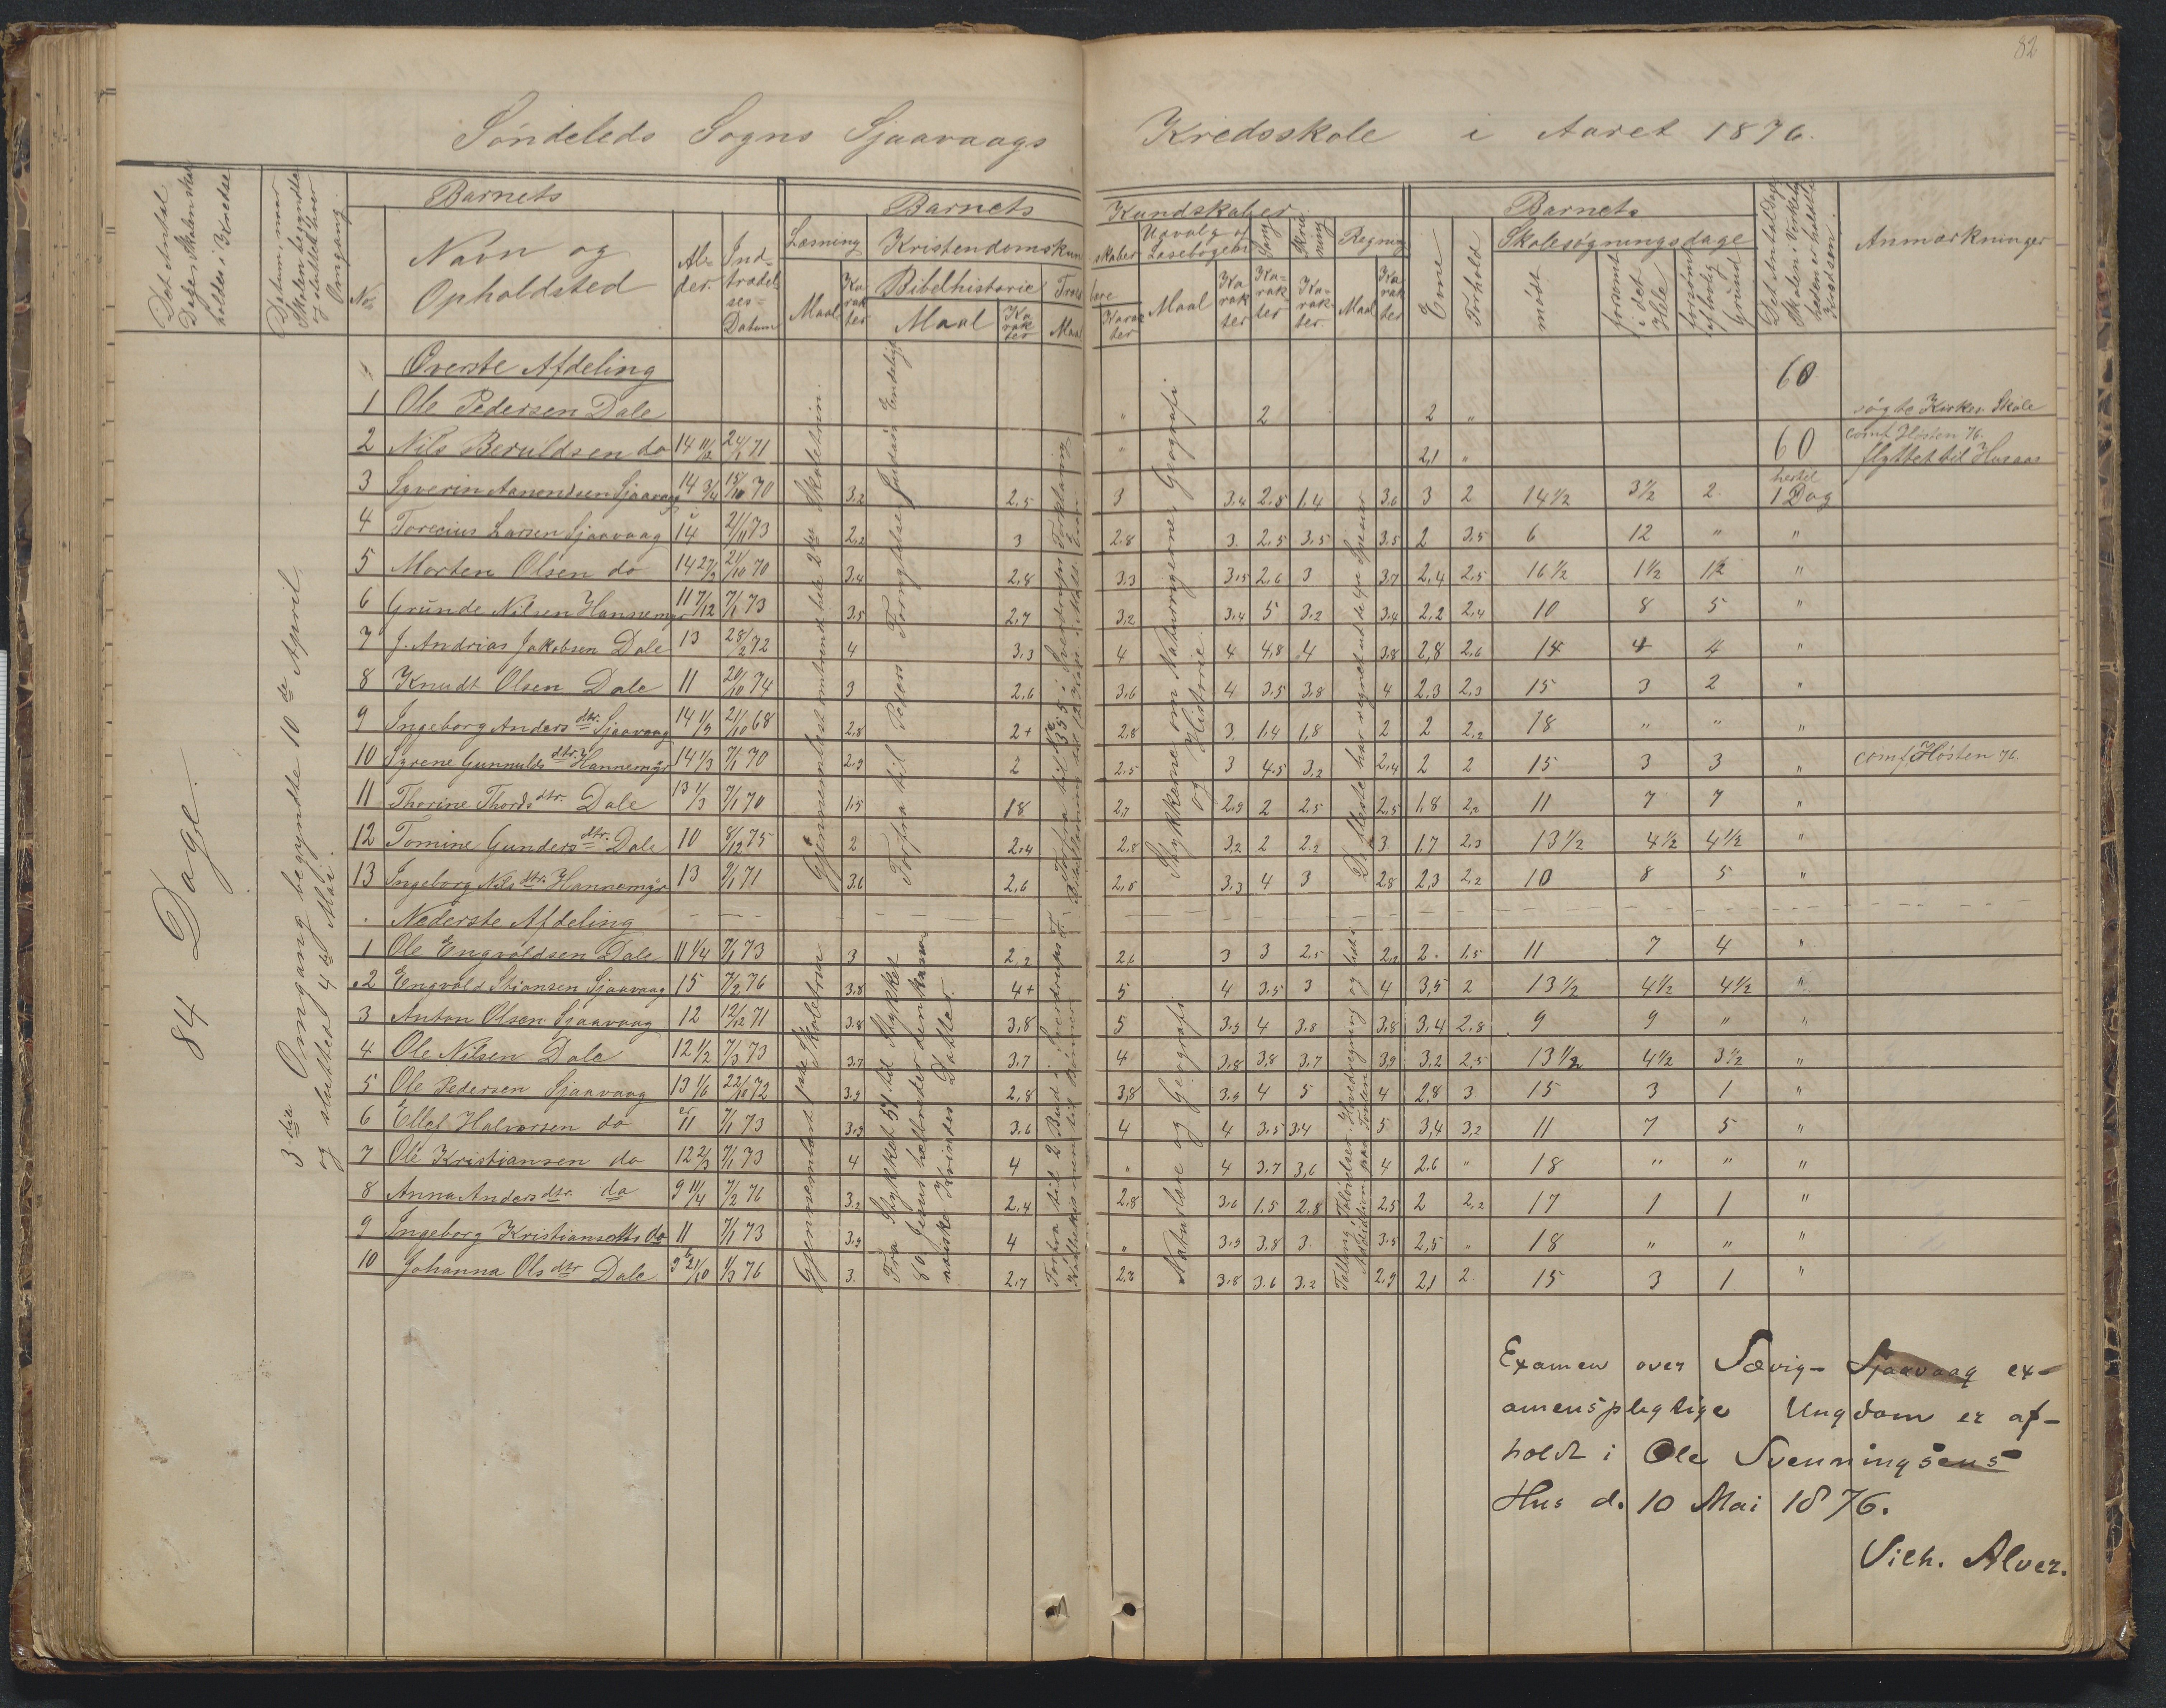 82
Søndeleds Sogns Sjaavaags Kredsskole i Aaret 1876.
Det Antal Dage Skolen skal holdes i Kredse
Datum, naar Skolen begyndte og slutted hver Omgang
Barnets
No.
Navn og Opholdsted
Al-der
Ind-trædel-ses-Datum
Barnets Kundskaber
Læsning
Maal
Ka rak ter
Kristendomskundskaber
Bibelhistorie
Maal
Ka rak ter
Troes lære
Maal
Karak ter
Udvalg af Læsebogen
Maal
Ka rak ter
Sang
Ka-rak ter
Skriv ning
Ka-rak-ter
Regning
Maal
Ka rak ter
Barnets
Evne
Forhold
Skolesøgningsdage
mødt
forsømt i det Hele
forsømt af lovlig Grund
Det Antal Dage Skolen i Virkeligheden er holdt i Kredsen.
Anmærkninger
84 Dage.
3die Omgang begyndte 10de April
og slutted 4de Mai.
Øverste Afdeling 60
1 Ole Pedersen Dale " 2 2 " søgte Kirkes. Skole
2 Nils Beruldsen do 14 11/12 24/1 71 " 2,1 " 60 comf. Høsten 76. flyttet til Husaas
3 Syverin Aanondsen Sjaavaag 14 3/4 15/10 70 3.2 2.5 3 3.4 2.8 1.4 3.6 3 2 14 1/2 3 1/2 2 hertil 1 Dag
4 Torecius Larsen Sjaavaag 14 21/11 73 2.2 3 2.8 3. 2.5 3.5 3.5 2 3.5 6 12 " "
5 Morten Olsen do 14 21/10 70 3.4 2.8 3.3 3.5 2.6 3 3.7 2.4 2.5 16 1/2 1 1/2 1/2 "
6 Grunde Nilsen Hannemyr 11 7/12 7/1 73 3.5 2.7 3.2 3.4 5 3.2 3.4 2.2 2.4 10 8 5 "
7 J. Andrias Jakobsen Dale 13 28/2 72 4 3.3 4 4 4,8 4 3.8 2,8 2.6 14 4 4 "
8 Knudt Olsen Dale 11 20/10 74 3 2.6 3.6 4 3.5 3.8 4 2.3 2.3 15 3 2 "
9 Ingeborg Andersdtr. Sjaavaag 14 1/3 21/10 68 2.8 2+ 2.8 3. 1.4 1,8 2 2 2.2 18 " " "
10 Syrene Gunnulds dtr. Hannemyr 14 1/3 7/1 70 2.9 2 2.5 3 4.5 3.2 2.4 2 2 15 3 3 " comf. Høsten 76.
11 Thorine Thords dtr. Dale 13 1/3 7/1 70 1.5 18 2.7 2.9 2 2.5 2.5 1.8 2.2 11 7 7 "
12 Tomine Gunders dtr. Dale 10 8/12 75 2 2.4 2.8 3.2 2 2.2 3. 1.7 2.3 13 1/2 4 1/2 4 1/2 "
13 Ingeborg Nils dtr. Hannemyr 13 9/1 71 3.6 2.6 2.5 3.3 4 3 2.8 2,3 2.2 10 8 5 "
Nederste Afdeling
1 Ole Engvoldsen Dale 11 1/4 7/1 73 3 2.2 2.6 3 3 2.5 2.2 2. 1.5 11 7 4 "
2 Engvold Stiansen Sjaavaag 15 7/2 76 3.8 4+ 5 4 3.5 3 4 3,5 2 13 1/2 4 1/2 4 1/2 "
3 Anton Olsen Sjaavaag 12 12/12 71 3.8 3,8 5 3.5 4 3.8 3.8 3.4 2.8 9 9 " "
4 Ole Nilsen Dale 12 1/2 7/3 73 3.7 3.7 4 3.8 3,8 3.7 3.9 3.2 2.5 13 1/2 4 1/2 3 1/2 "
5 Ole Pedersen Sjaavaag 13 1/6 22/10 72 3.9 2,8 3,8 3.9 4 5 4 2,8 3. 15 3 1 "
6 Ellef Halvorsen do 11 7/1 73 3.9 3.6 4 4 3.5 3.4 5 3,4 3,2 11 7 5 "
7 Ole Kristiansen do 12 2/3 7/1 73 4 4 " 4 3.7 3,6 4 2.6 " 18 " " "
8 Anna Anders dtr. do 9 11/4 7/2 76 3.2 2.4 2.8 3.6 1.5 2.8 2.5 2 2.2 17 1 1 "
9 Ingeborg Kristians dtr do 11 7/1 73 3.9 4 " 3.9 3.8 3. 3.5 2,5 " 18 " " "
10 Johanna Ols dtr Dale 9 1/3 76 3. 2.7 2.8 3.8 3.6 3.2 2.9 2,1 2 15 3 1 "
Gjennemlæst omtrent hele 2den Skoletrin.
Forfra til Peters Fornægtelse Judas's Endeligt
Stykkerne om Naturrigerne, Geografi og Historie.
De fleste har regnet ud de 4re Speseier
Gjennemlæst 1ste Skoletrin
Fra Stykket 51 til Stykket 80 Jesus helbreder den kananæiske Kvindes Datter.
Forfra til 2 Bud i Sverdrups F.
Naturlære og Geografi.
Tælling, Talløndser. Hovedregning og lidt i Addition paa Tavlen
Examen over Sævig-Sjaavaag ex-
amenspligtige Ungdom er af-
holdt i Ole Svenningsens
Hus d. 10 Mai 1876.
Vilh. Alver.